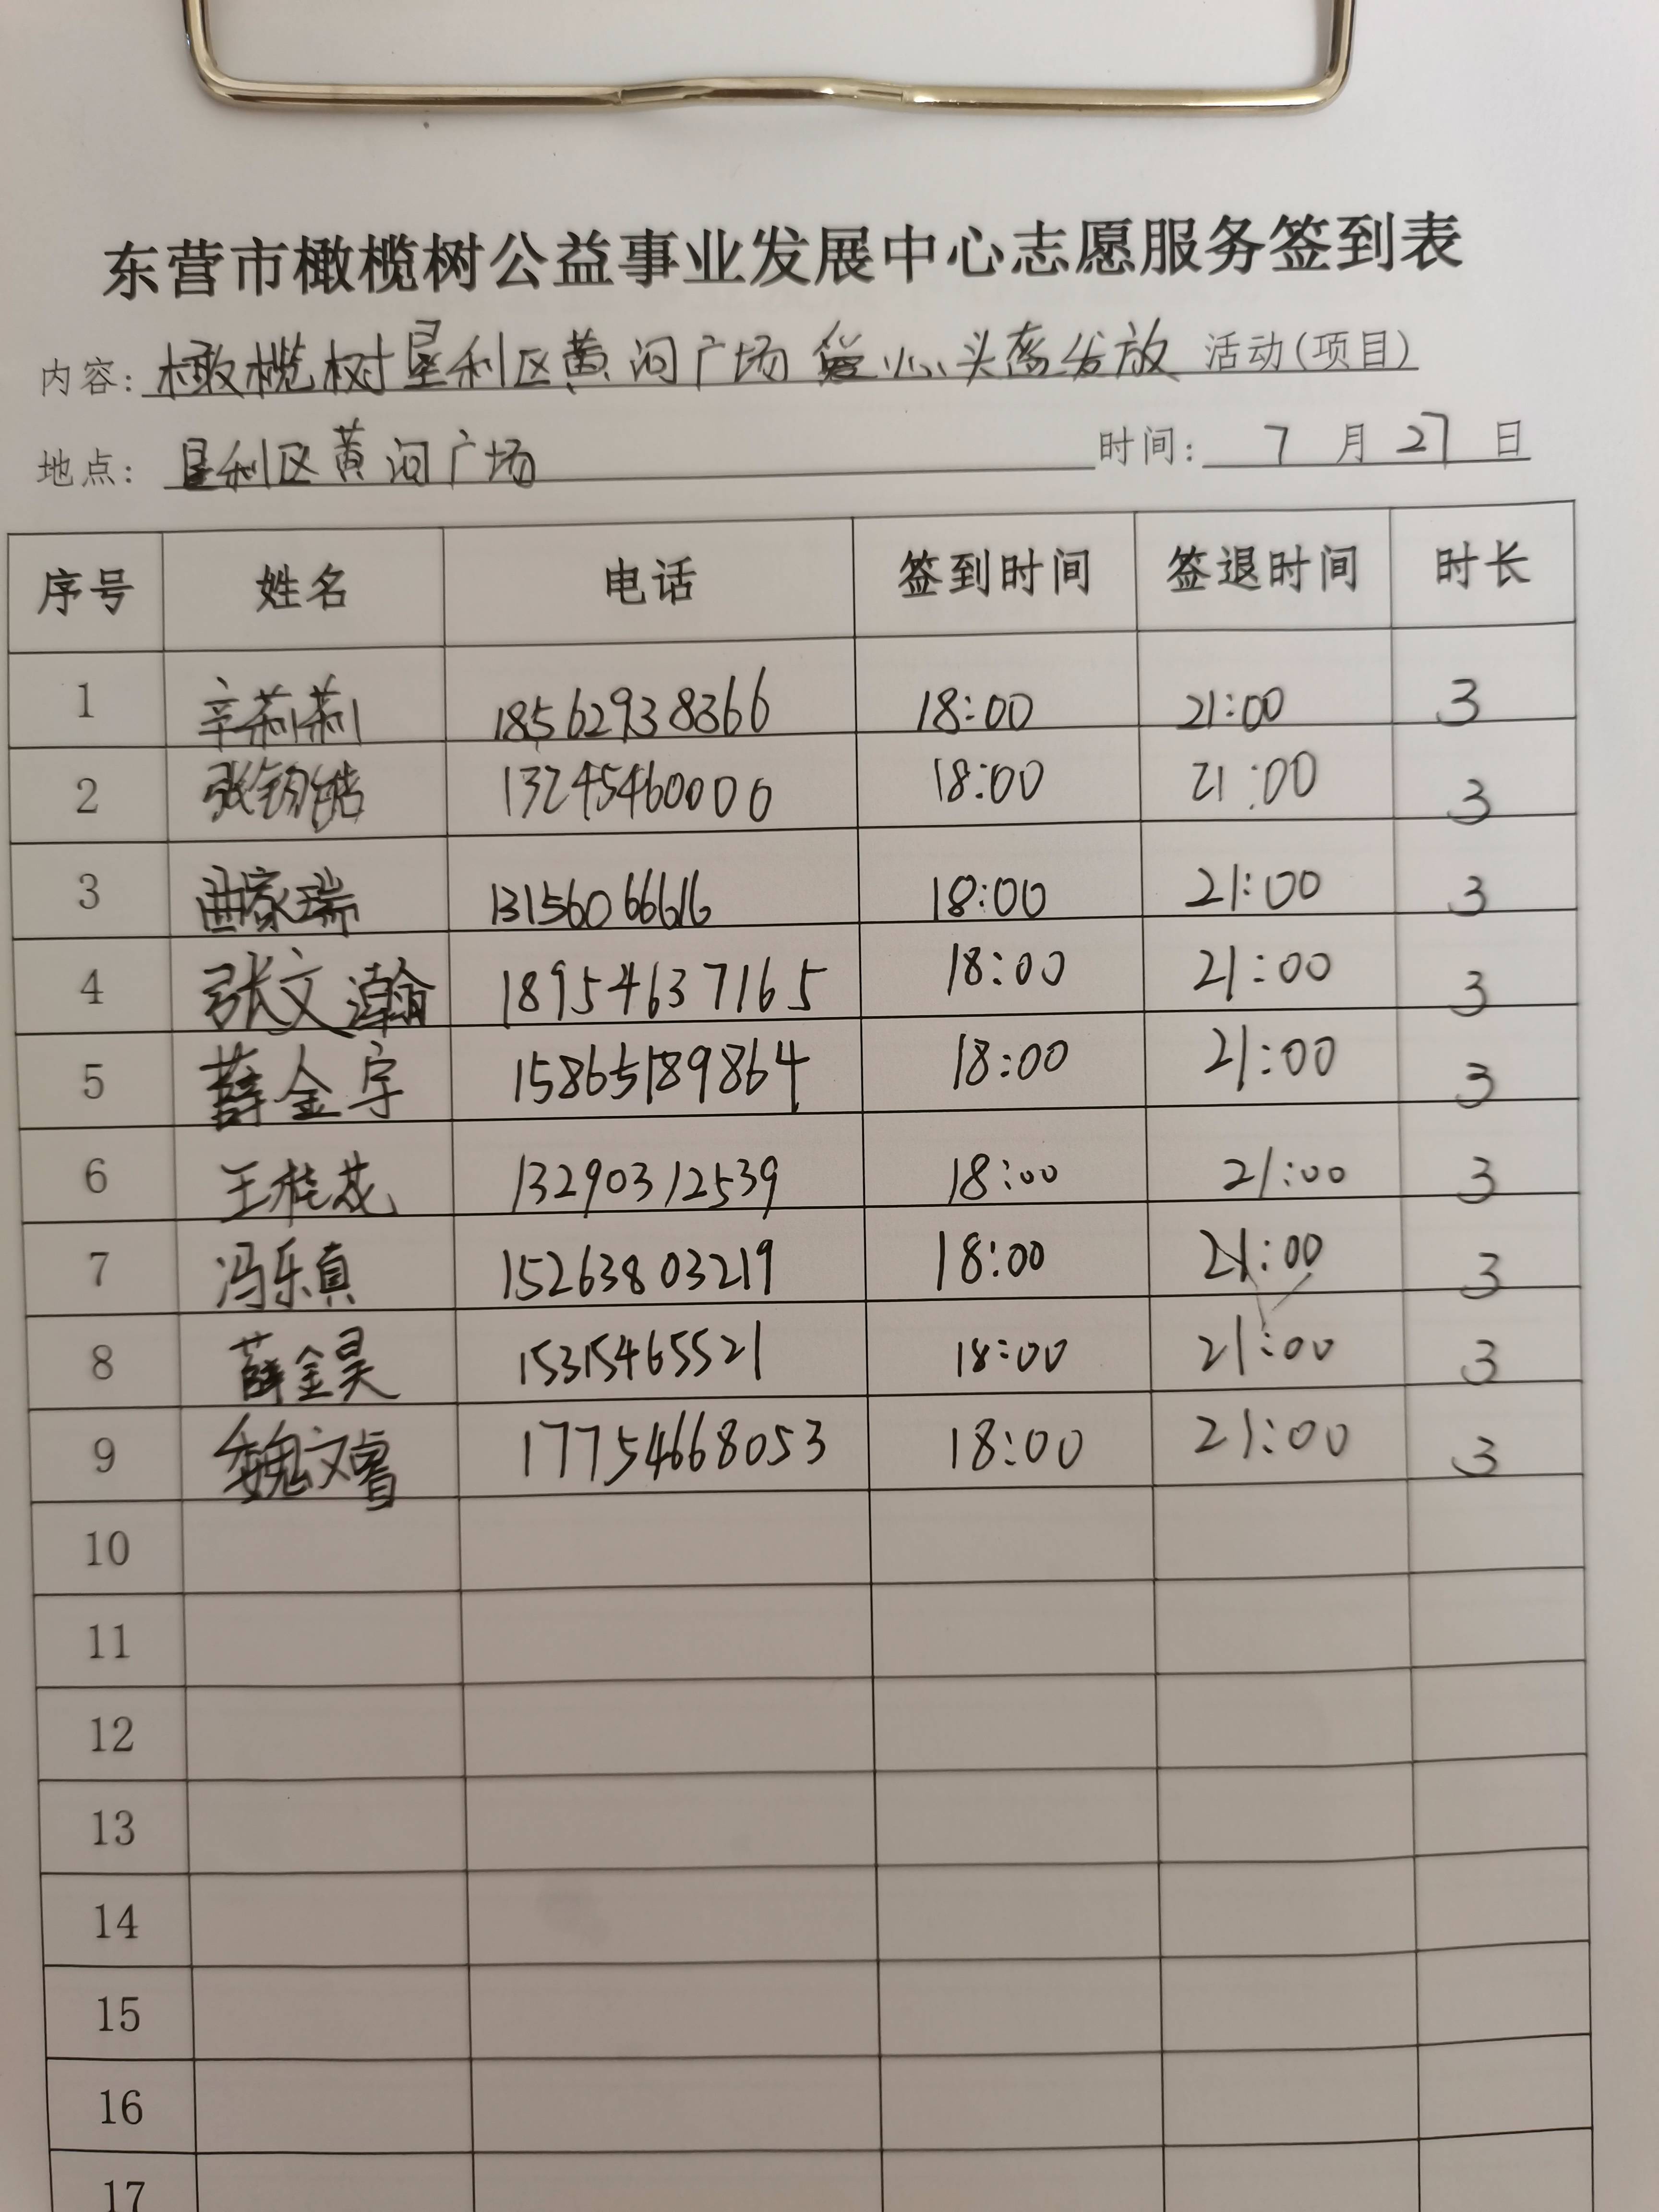 东营市橄榄树公益事业发展中心志愿服务签到表
内容: 橄榄树垦利区黄河广场爱心头盔发放 活动(项目)
地点: 垦利区黄河广场 时间: 7 月 27 日
序号 姓名 电话 签到时间 签退时间 时长
1 辛莉莉 18562938366 18:00 21:00 3
2 张钧皓 13245460000 18:00 21:00 3
3 曲家瑞 13156066616 18:00 21:00 3
4 张文瀚 18954637165 18:00 21:00 3
5 薛金宇 15865189864 18:00 21:00 3
6 王桂花 13290312539 18:00 21:00 3
7 冯乐真 15263803219 18:00 21:00 3
8 薛金昊 15315465521 18:00 21:00 3
9 魏文睿 17754668053 18:00 21:00 3
10
11
12
13
14
15
16
17